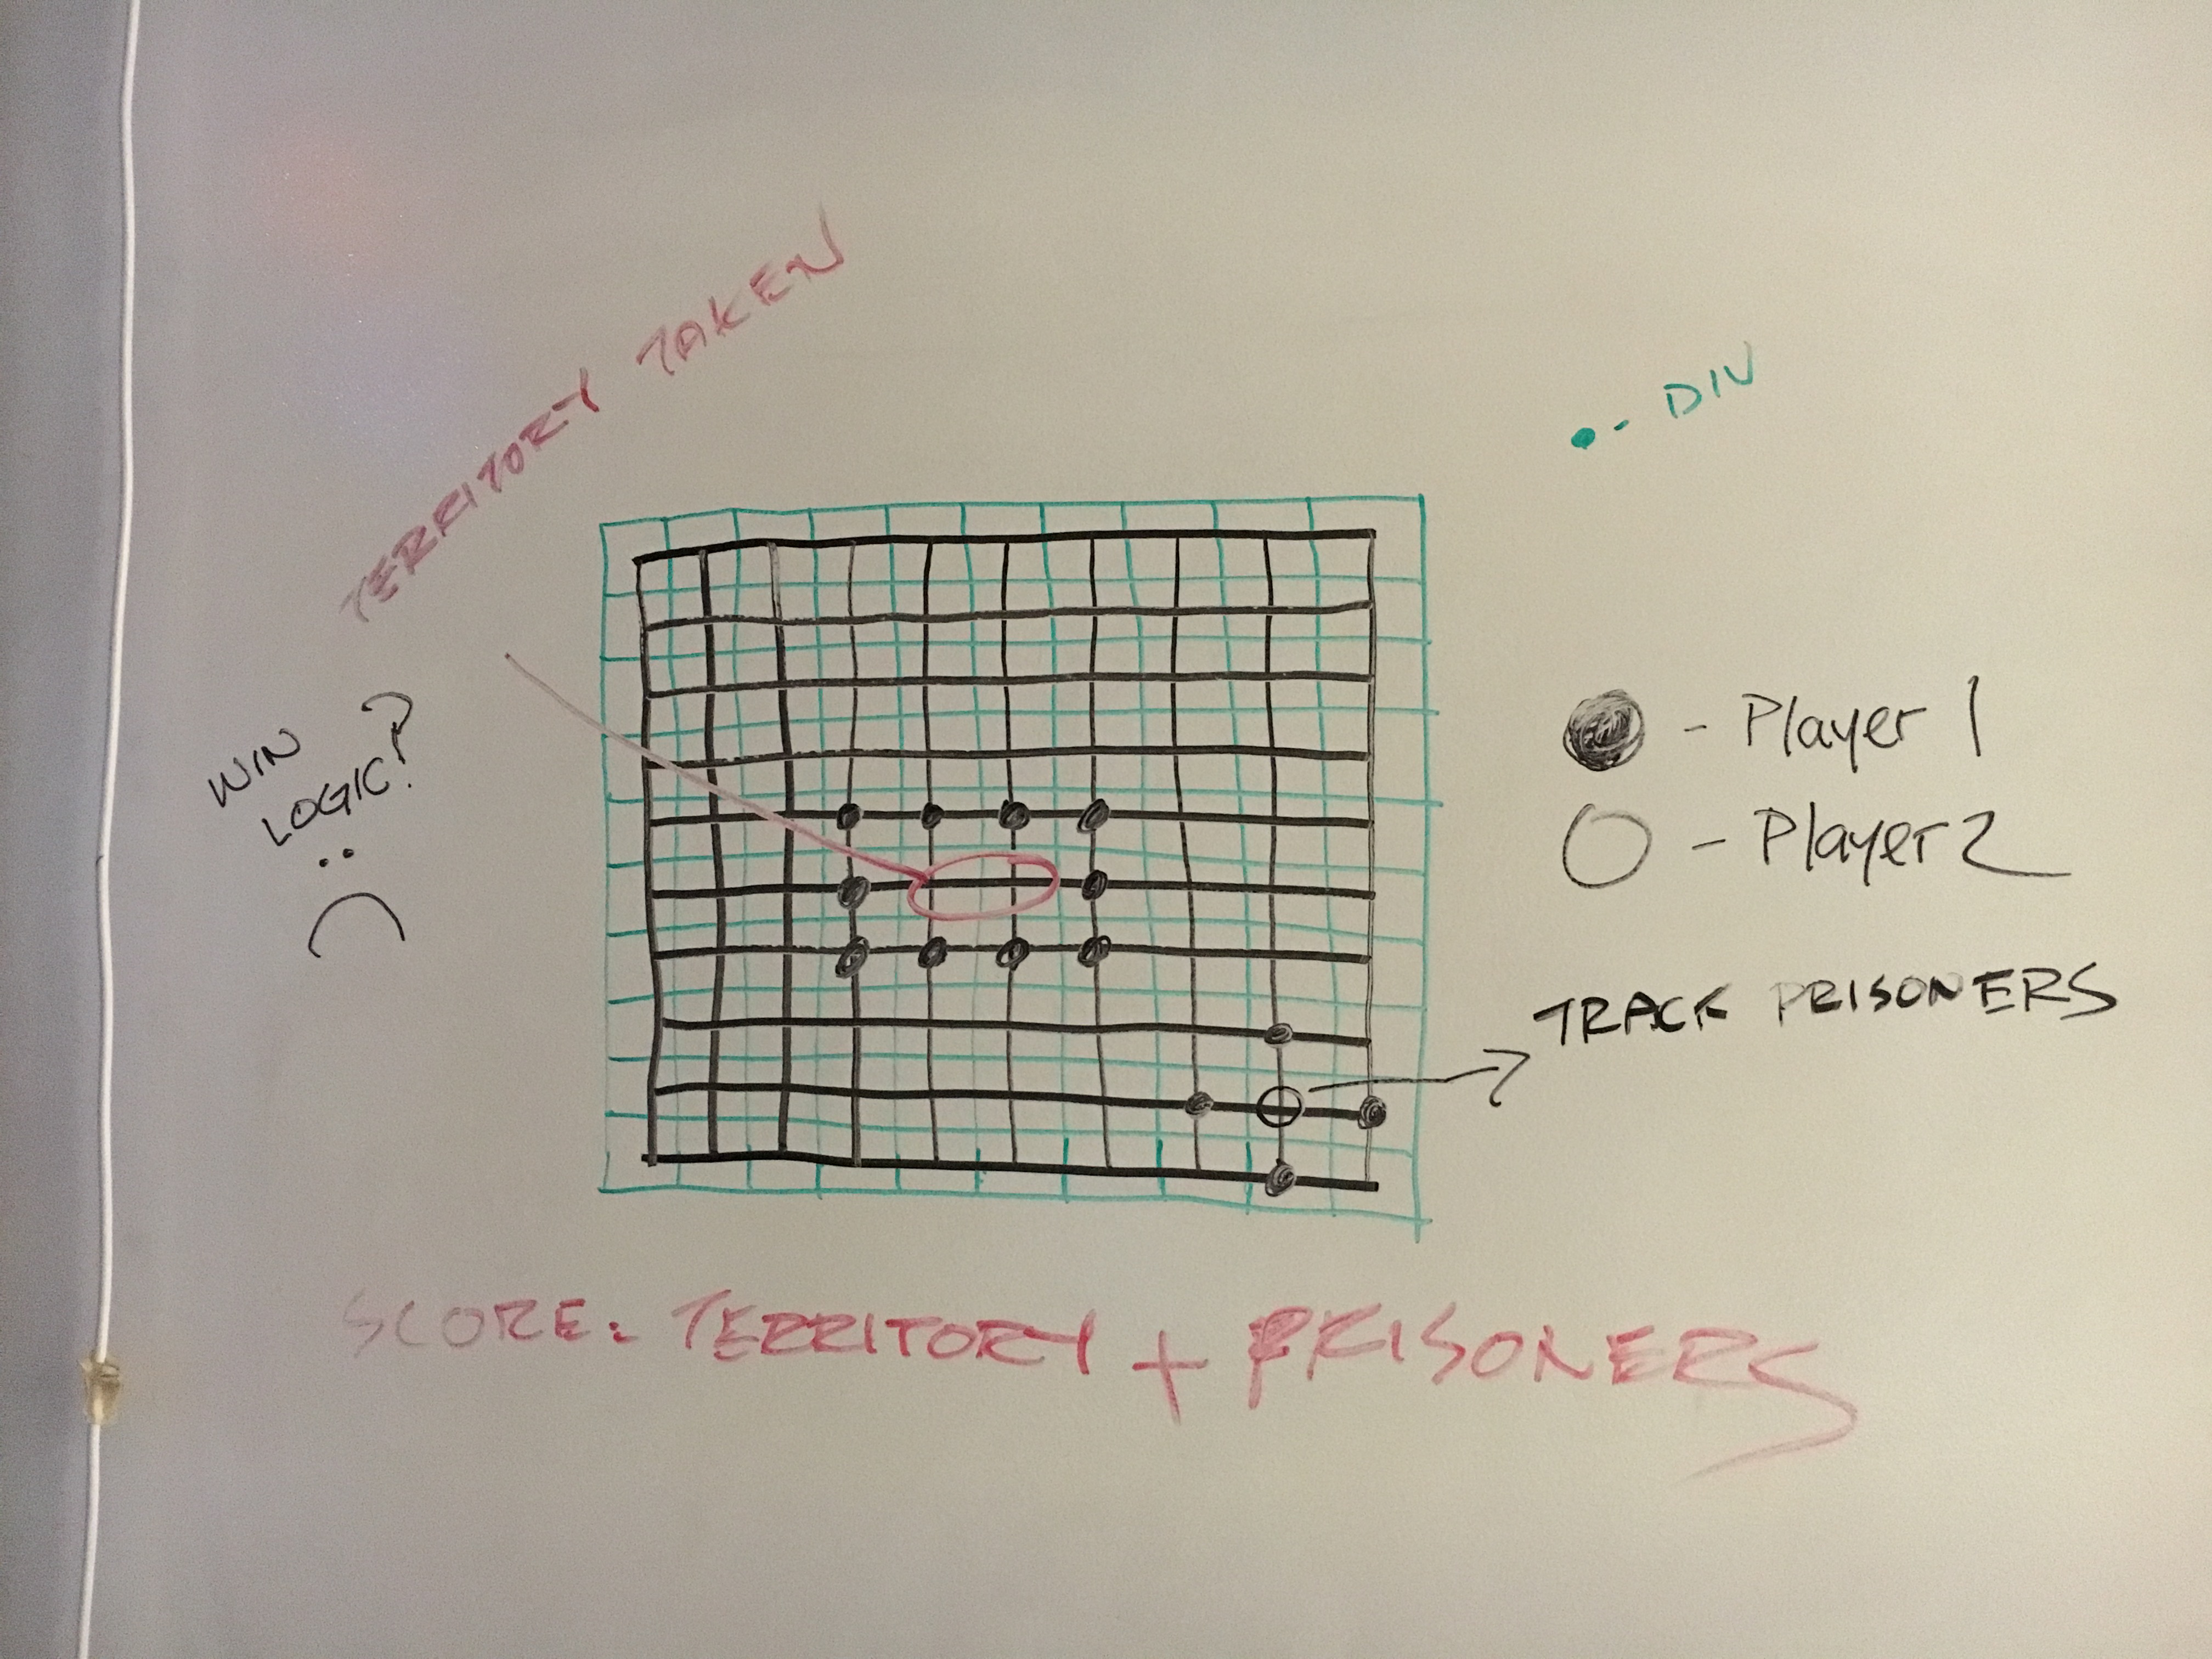 TERRITORY TAKEN
• - DIV
WIN
LOGIC?
- Player 1
- Player 2
TRACK PRISONERS
SCORE: TERRITORY + PRISONERS